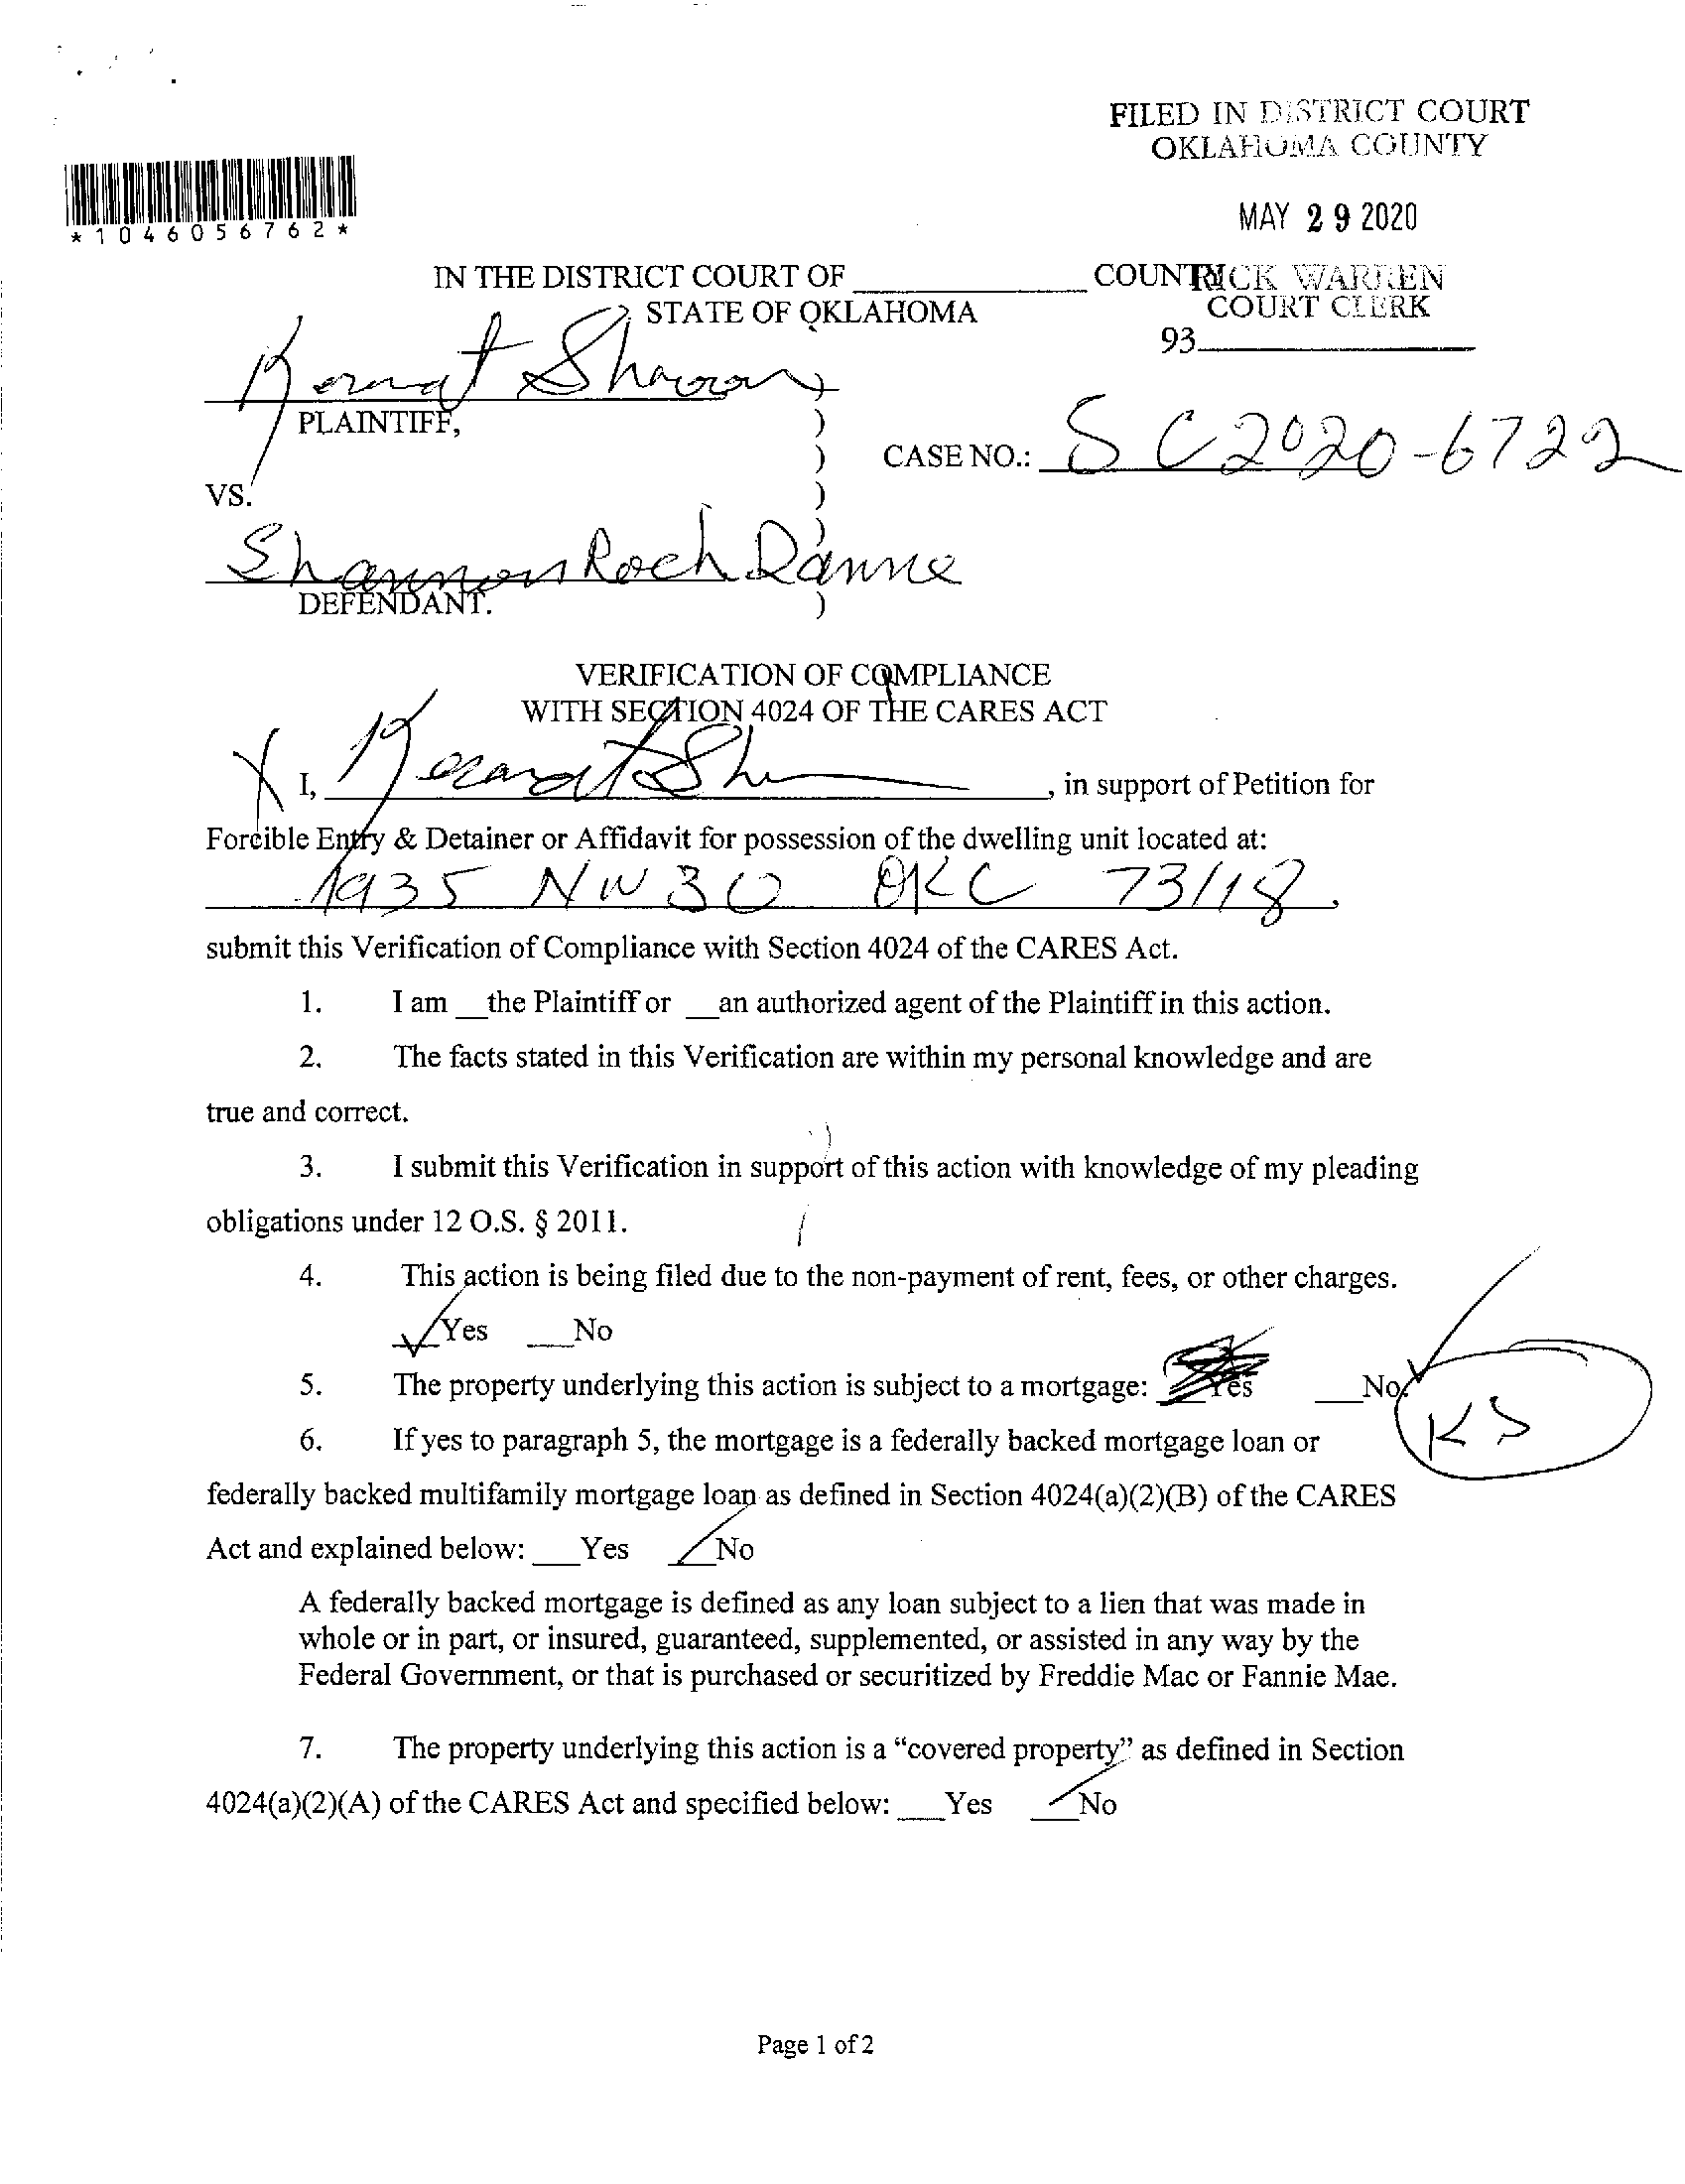 FILED IN DISTRICT COURT
OKLAHOMA COUNTY
MAY 29 2020
*1046056762*
IN THE DISTRICT COURT OF ____________ COUNTY
RICK WARREN
STATE OF OKLAHOMA
COURT CLERK
93____________
PLAINTIFF, )
)
CASE NO.: SC2020-6722
)
VS. )
)
Shannon Roch Danne
DEFENDANT. )
VERIFICATION OF COMPLIANCE
WITH SECTION 4024 OF THE CARES ACT
X I, ____________, in support of Petition for
Forcible Entry & Detainer or Affidavit for possession of the dwelling unit located at:
1935 NW 30 OKC 73118,
submit this Verification of Compliance with Section 4024 of the CARES Act.
1. I am __the Plaintiff or __an authorized agent of the Plaintiff in this action.
2. The facts stated in this Verification are within my personal knowledge and are
true and correct.
3. I submit this Verification in support of this action with knowledge of my pleading
obligations under 12 O.S. § 2011.
4. This action is being filed due to the non-payment of rent, fees, or other charges.
✓Yes ___No
5. The property underlying this action is subject to a mortgage: ___Yes ___No. ✓
KS
6. If yes to paragraph 5, the mortgage is a federally backed mortgage loan or
federally backed multifamily mortgage loan as defined in Section 4024(a)(2)(B) of the CARES
Act and explained below: ___Yes ✓No
A federally backed mortgage is defined as any loan subject to a lien that was made in
whole or in part, or insured, guaranteed, supplemented, or assisted in any way by the
Federal Government, or that is purchased or securitized by Freddie Mac or Fannie Mae.
7. The property underlying this action is a “covered property” as defined in Section
4024(a)(2)(A) of the CARES Act and specified below: ___Yes ✓No
Page 1 of 2